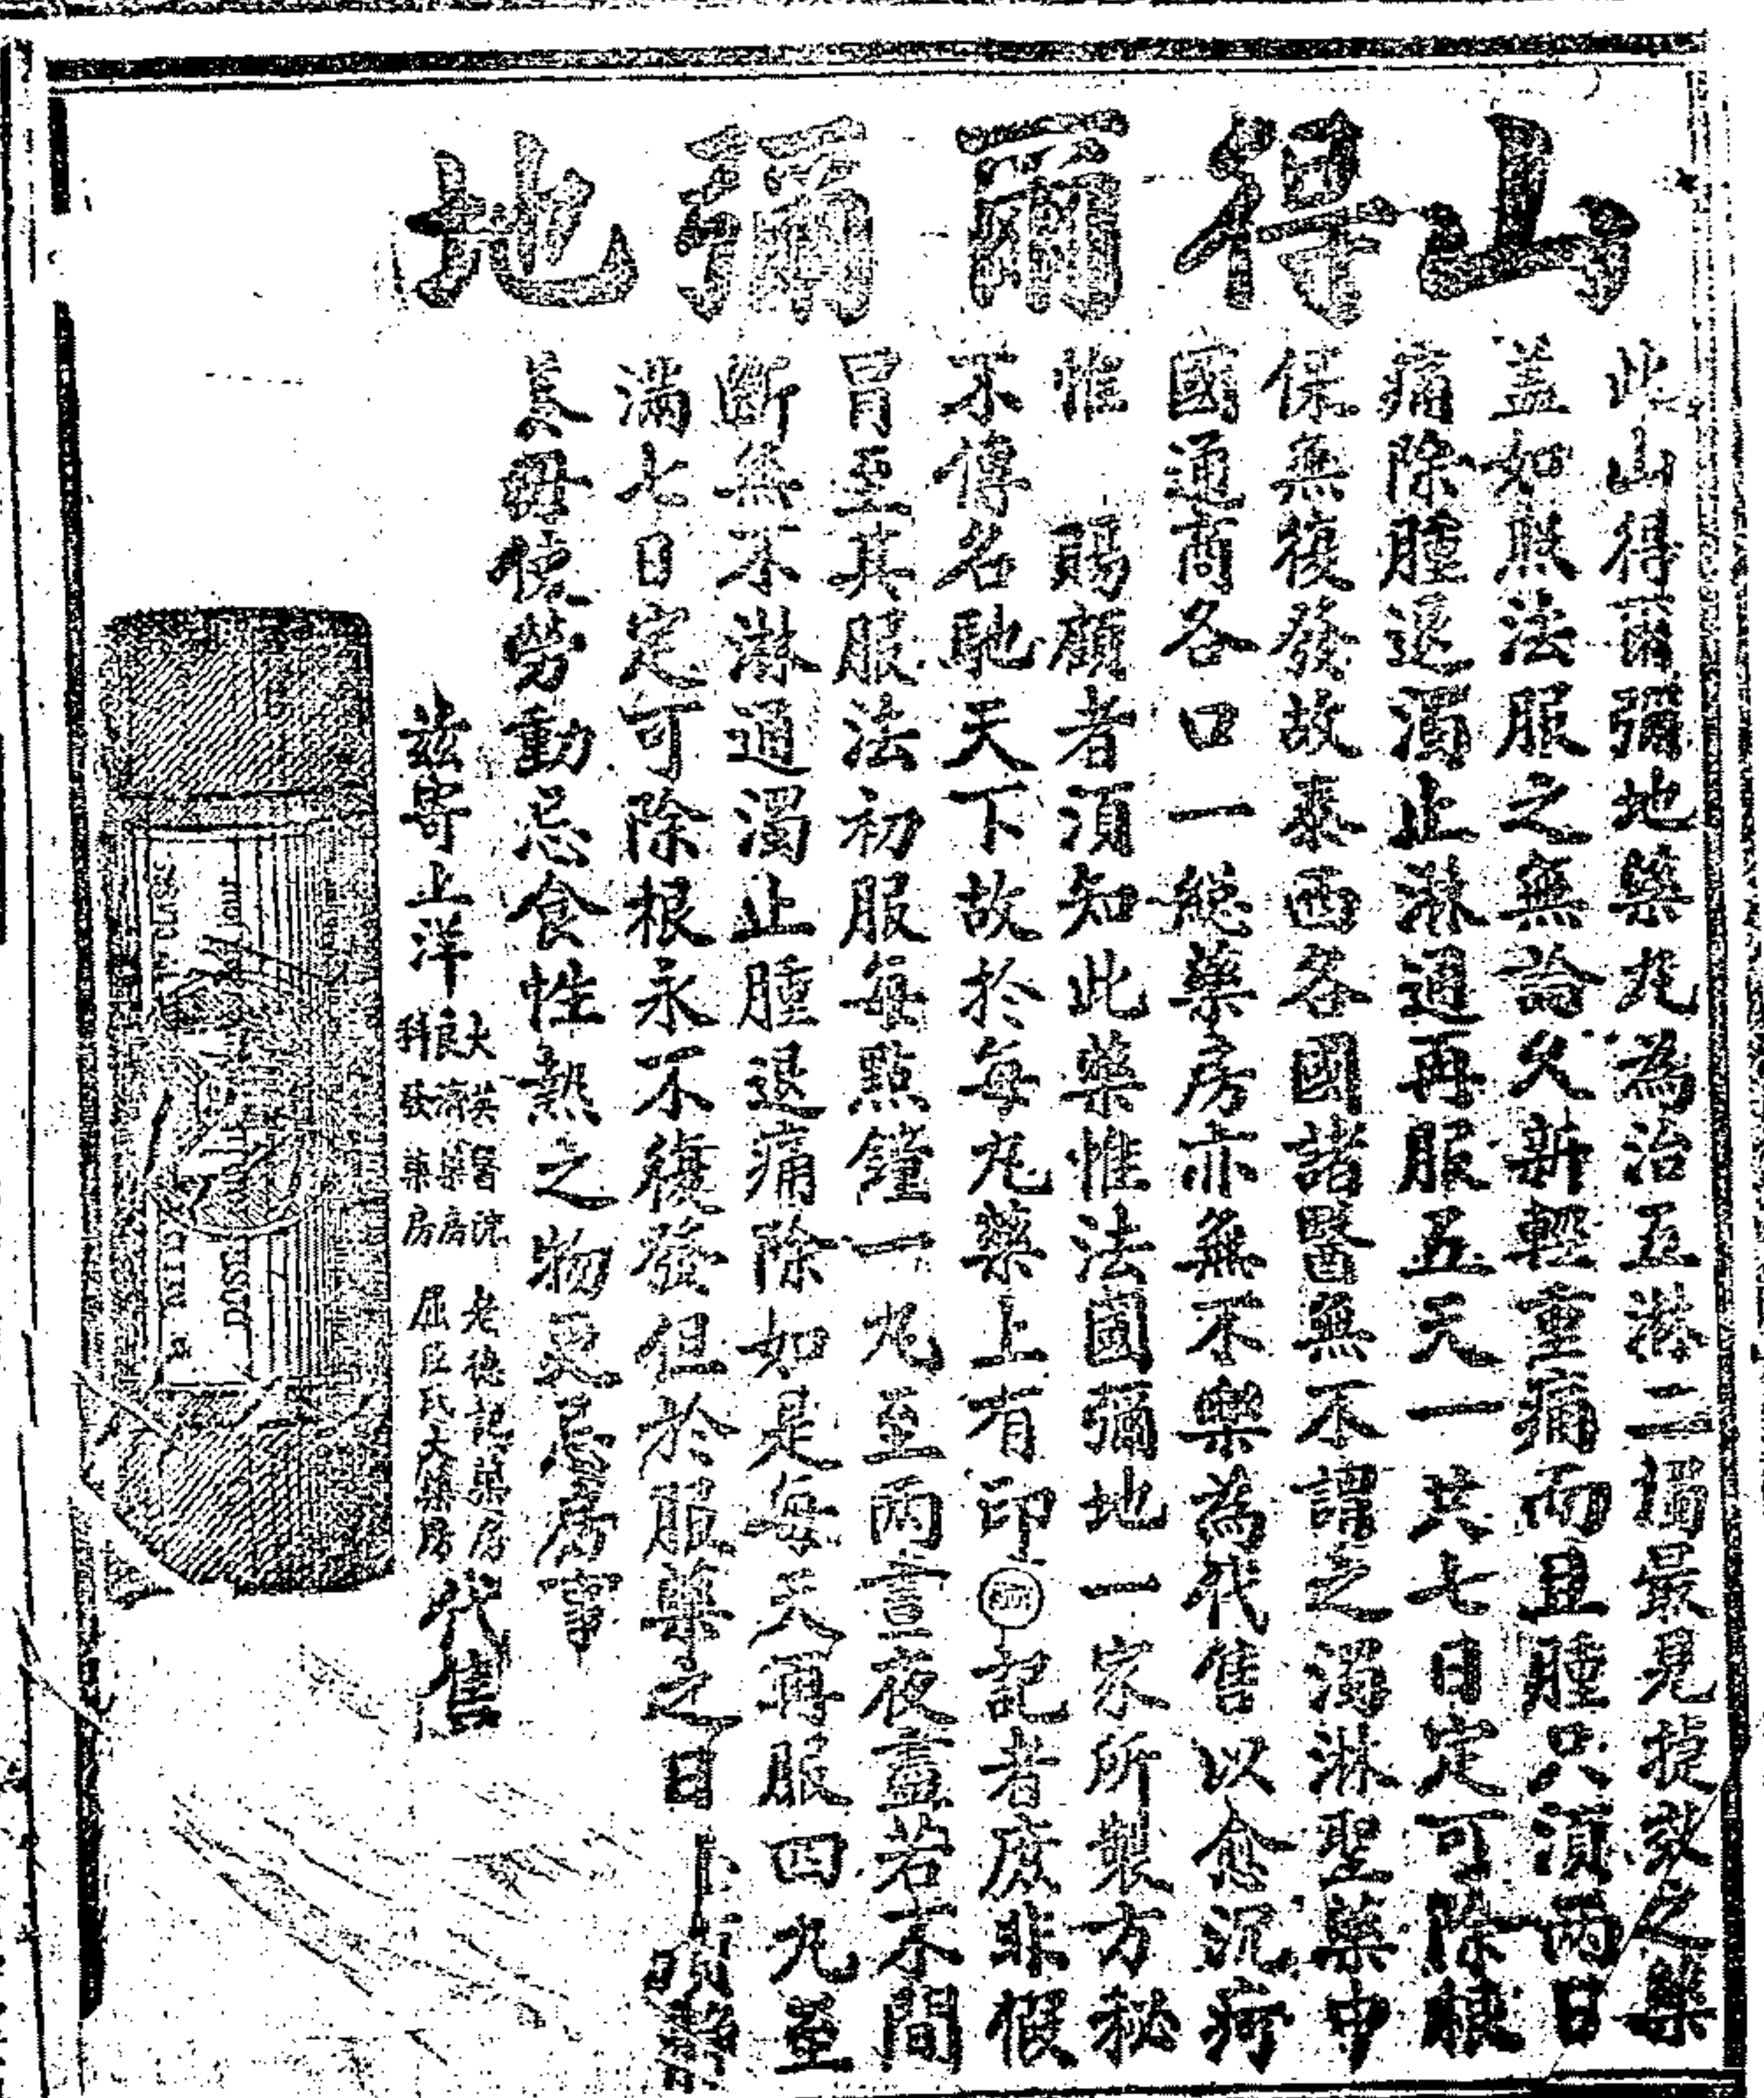 山得爾彌地
此山得爾彌地藥丸為治五淋二濁最見捷效之藥
盖如照法服之無論久新輕重痛而且腫只須兩日
痛除腫退濁止淋通再服五天一共七日定可除根
保無復發故泰西各國諸醫無不謂之濁淋聖藥中
國通商各口一總藥房亦無不樂為代售以愈沉疴
惟　賜顧者須知此藥惟法國彌地一家所製方秘
不傳名馳天下故於每丸藥上有印記者庶非假
冒至其服法初服每點鐘一丸至兩晝夜晝若不間
斷無不淋通濁止腫退痛除如是每天再服四丸至
滿七日定可除根永不復發但於服藥之日
人毋使勞動忌食性熱之物更忌房事
茲寄上洋
大英醫院
良濟藥房
科發藥房
老德記藥房
屈臣氏大藥房
代售